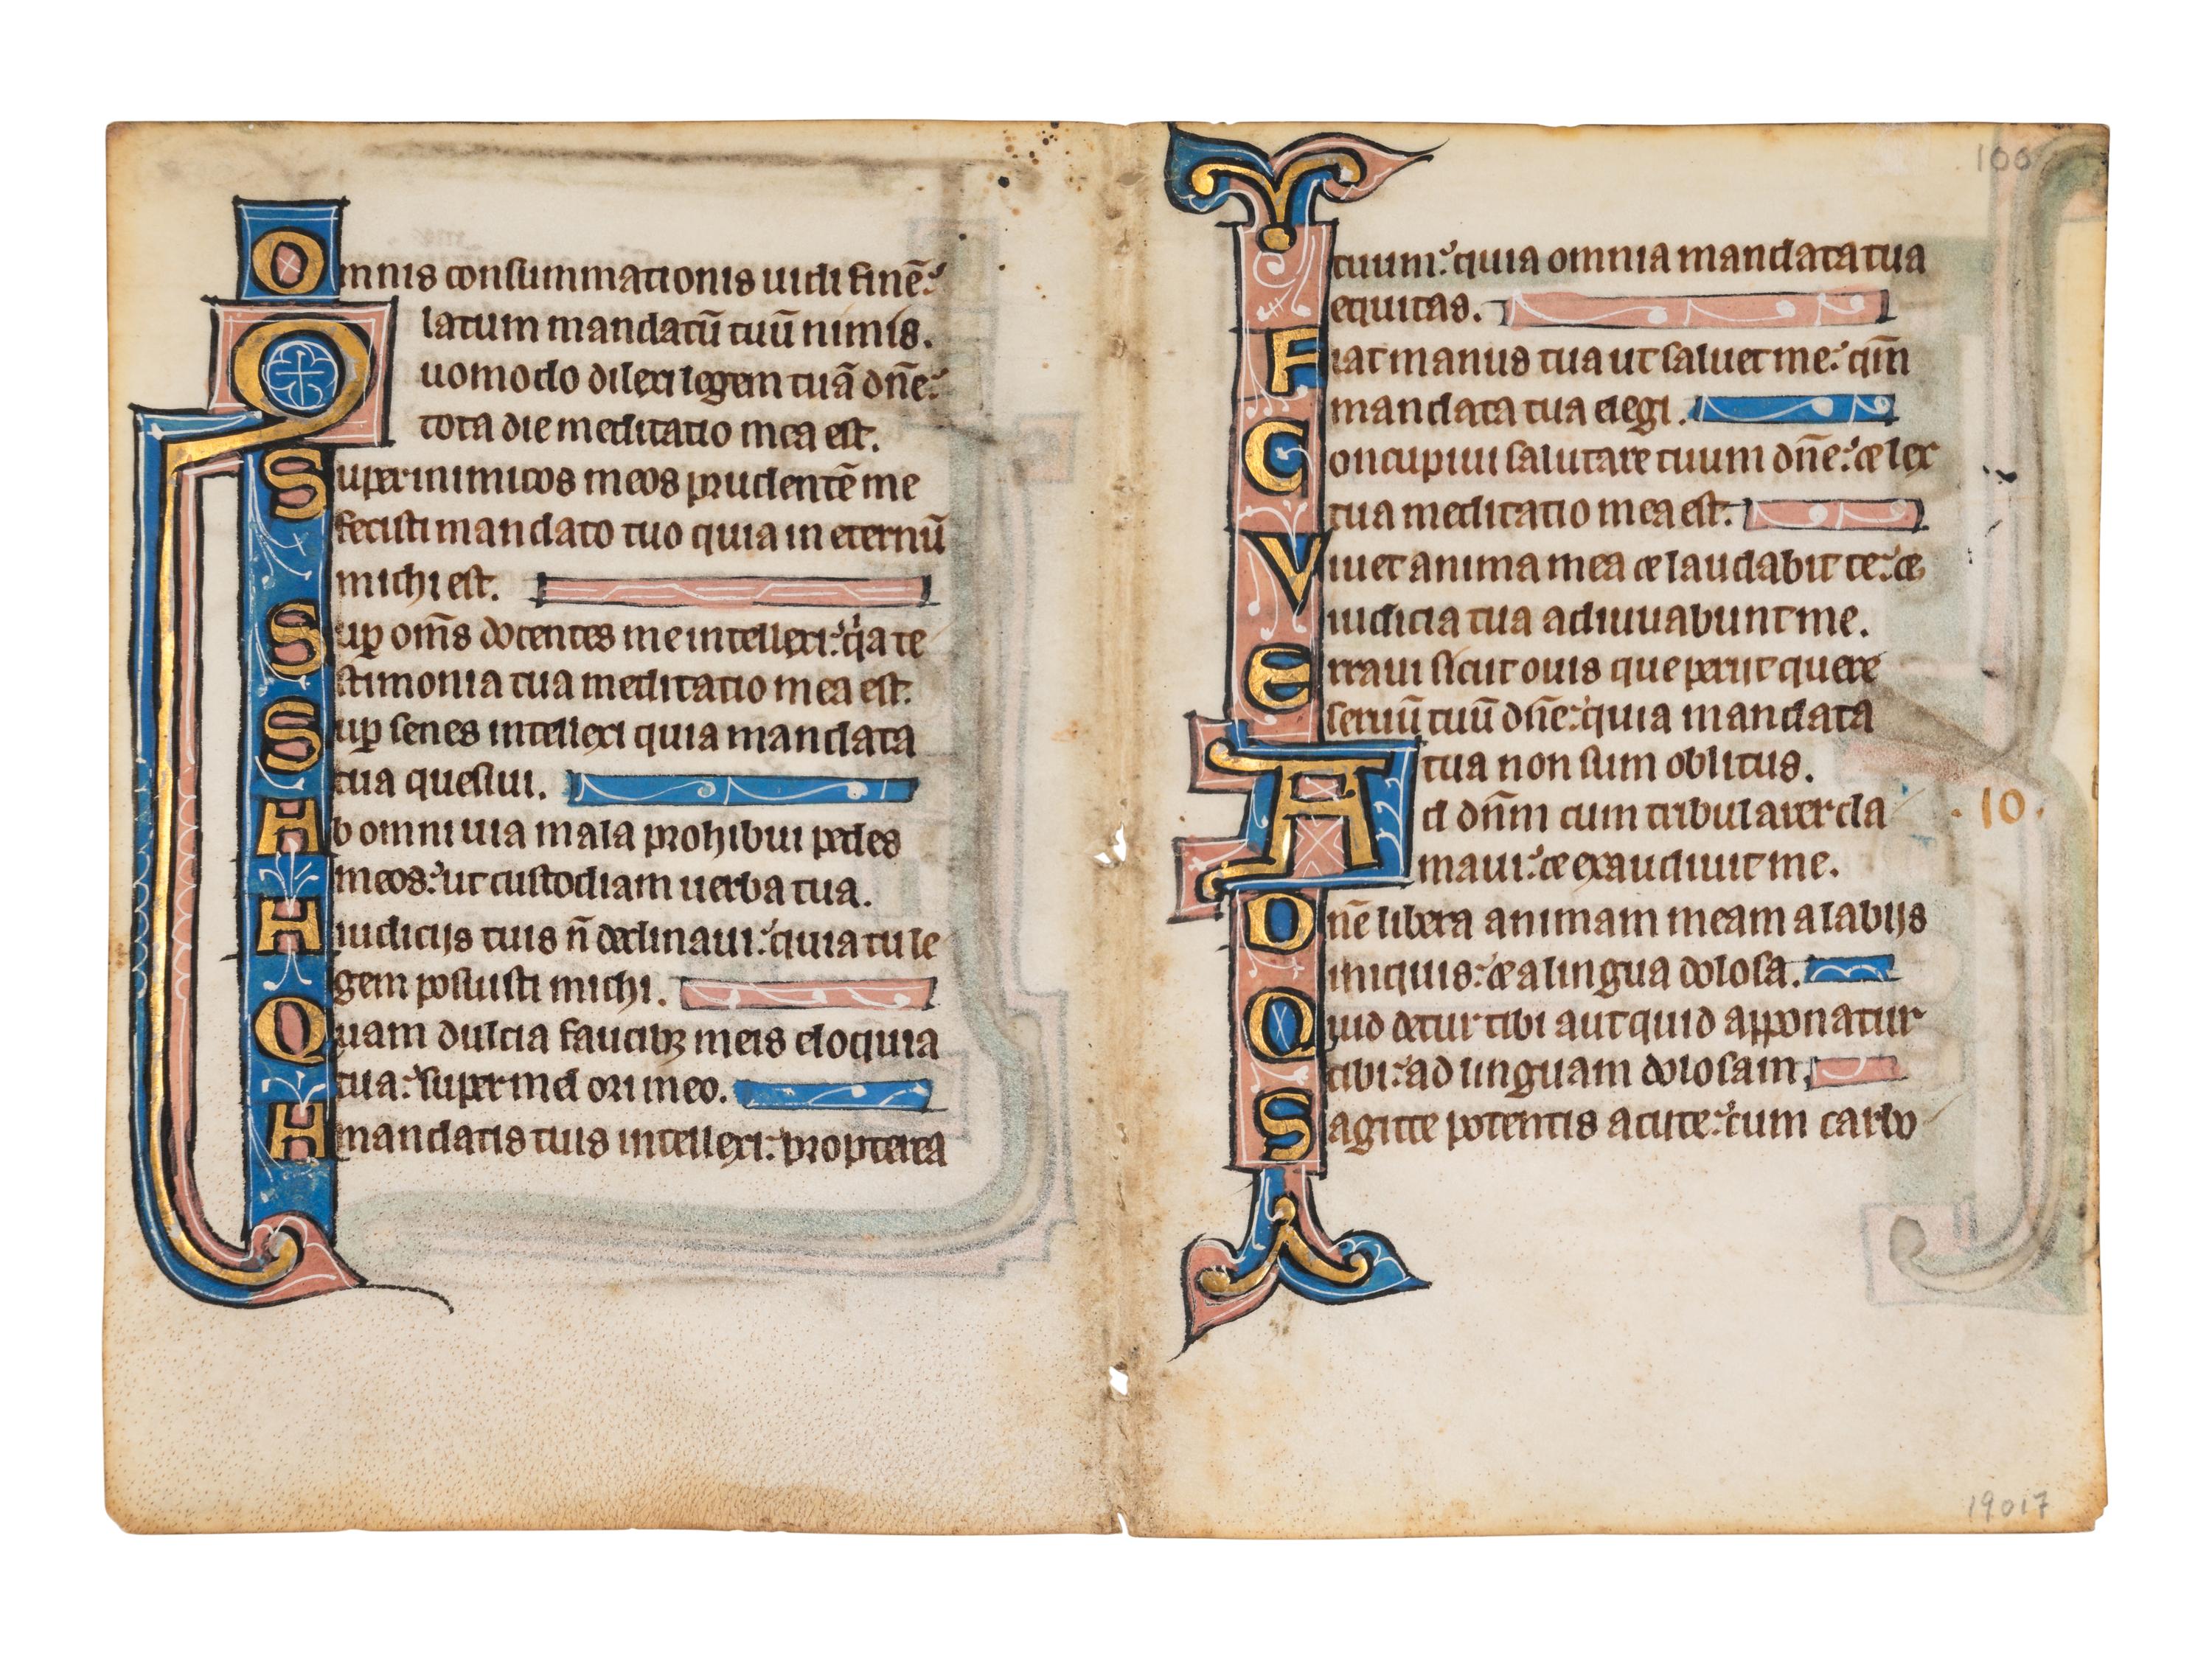 Omnis consummationis uidi finē:
latum mandatū tuū nimis.
Quomodo dilexi legem tuā dn̄e:
tota die meditatio mea est.
Super inimicos meos prudentē me
fecisti mandato tuo quia in eternū
michi est.
Suꝑ om̄s docentes me intellexi: qͥa te
stimonia tua meditatio mea est.
Suꝑ senes intellexi quia mandata
tua quesiui.
Ab omni uia mala prohibui pedes
meos: ut custodiam uerba tua.
A iudicijs tuis n̄ declinaui: quia tu le
gem posuisti michi.
Quam dulcia faucibꝫ meis eloquia
tua: super mel ori meo.
A mandatis tuis intellexi: propterea
100
tuum: quia omnia mandata tua
equitas.
Fiat manus tua ut saluet me: qm̄
mandata tua elegi.
Concupiui salutare tuum dn̄e: et lex
tua meditatio mea est.
Viuet anima mea et laudabit te: et
iudicia tua adiuuabunt me.
Erraui sicut ouis que perijt quere
seruū tuū dn̄e: quia mandata
tua non sum oblitus.
Ad dn̄m cum tribularer cla
maui: et exaudiuit me.
.10.
Dn̄e libera animam meam a labijs
iniquis: et a lingua dolosa.
Quid detur tibi aut quid apponatur
tibi: ad linguam dolosam.
Sagitte potentis acute: cum carbo
19017